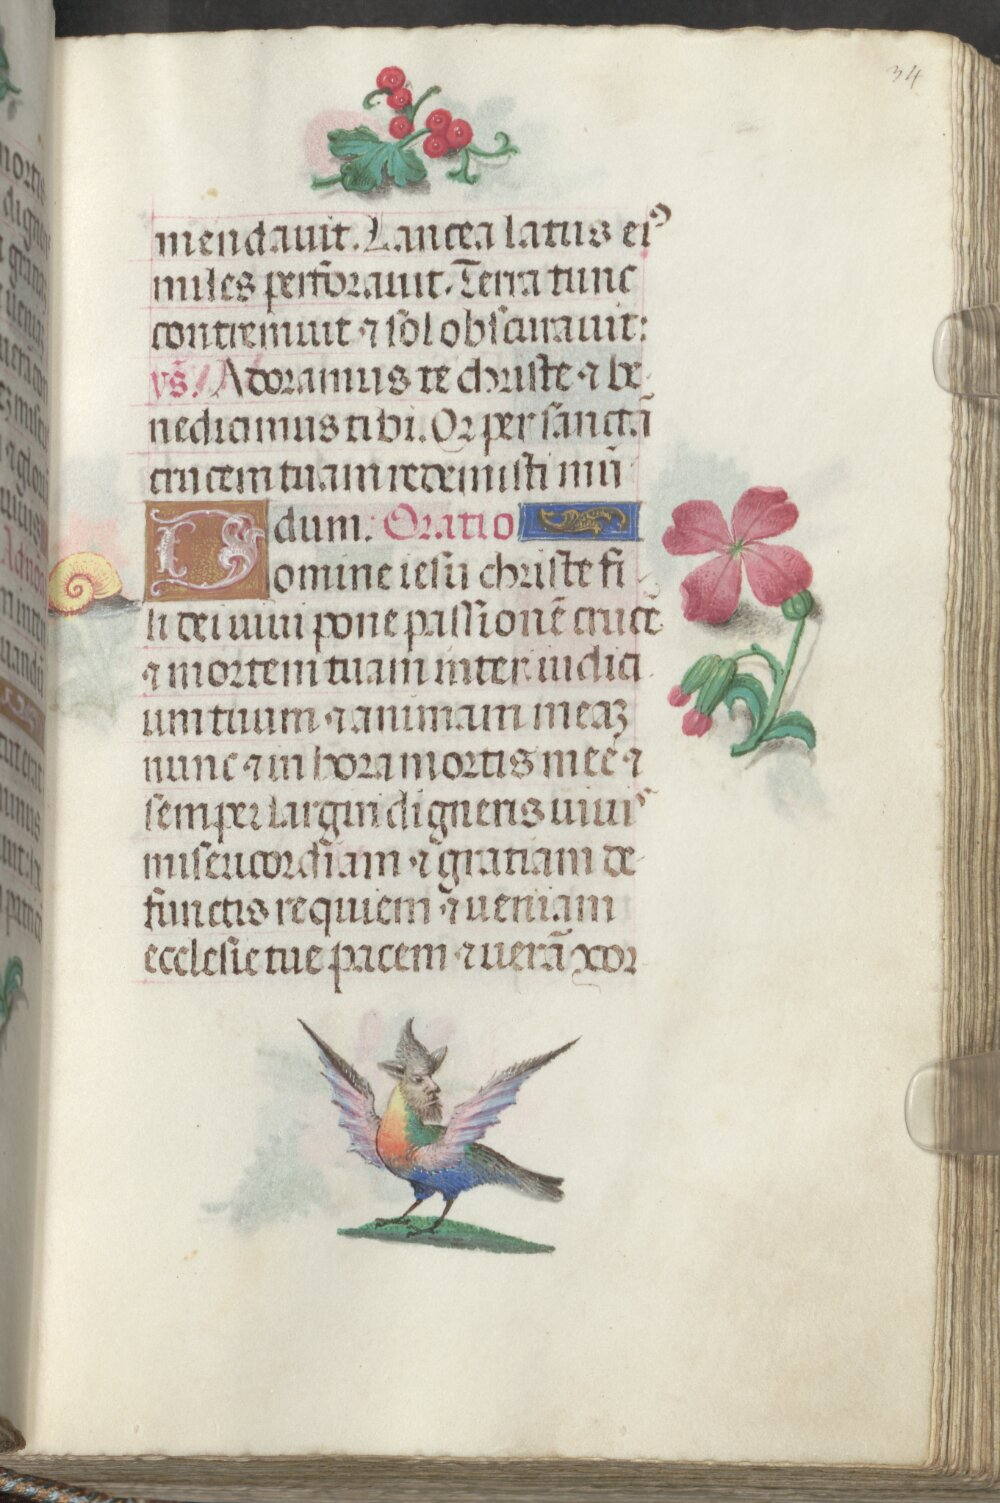 34
mendauit. Lancea latus eiꝰ
miles perforauit. Terra tunc
contremuit ⁊ sol obscurauit:
vs̃. Adoramus te christe ⁊ be
nedicimus tibi. Qr per sanctā
crucem tuam redemisti mū
dum. Oratio
Domine iesu christe fi
li dei uiui pone passionē crucē
⁊ mortem tuam inter iudici
um tuum ⁊ animam meaꝫ
nunc ⁊ in hora mortis mee ⁊
semper largiri digneris uiuis
misericordiam ⁊ gratiam de
functis requiem ⁊ ueniam
ecclesie tue pacem ⁊ uerā ↄcor